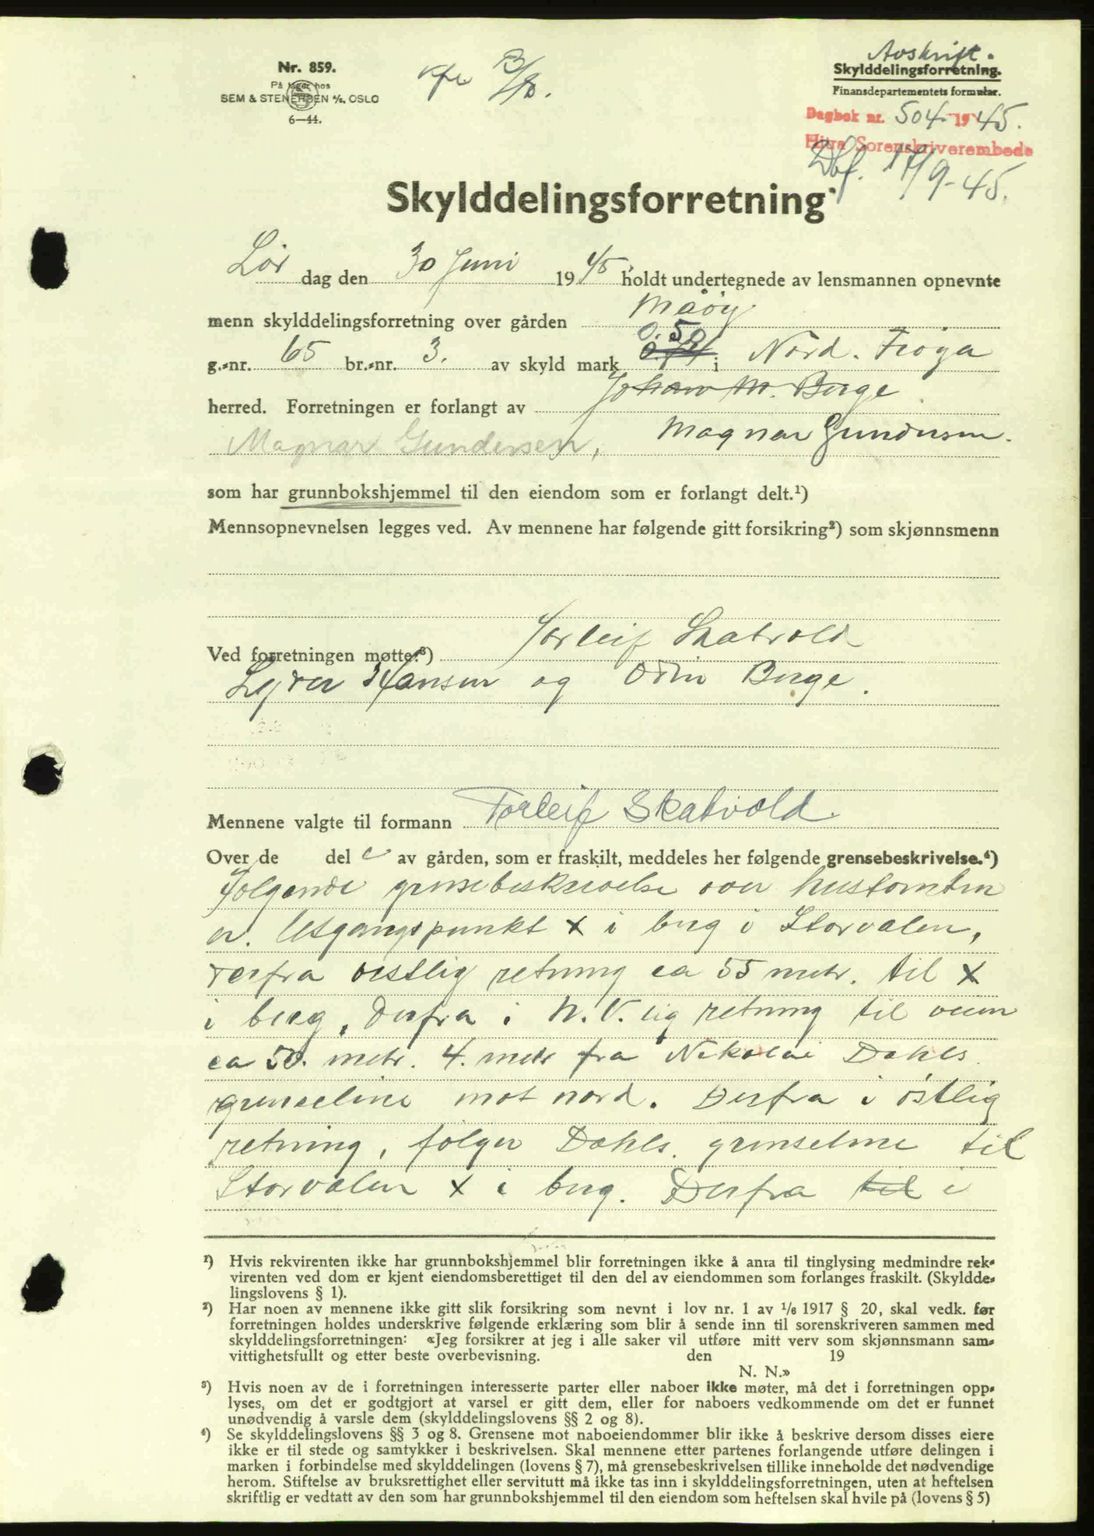 Nr. 859.
På lager hos
SEM & STENERSEN A/S, OSLO
6—44.
Avskrift.
Skylddelingsforretning.
Finansdepartementets formular.
Dagbok nr. 504 1945.
Hitra Sorenskriverembede
Dbf. 17/9-45.
Skylddelingsforretning
Lør dag den 30 Juni 1945 holdt undertegnede av lensmannen opnevnte
menn skylddelingsforretning over gården Måøy
0.50
g.-nr. 65 br.-nr. 3. av skyld mark i Nord. Frøya
herred. Forretningen er forlangt av Johan M. Berge
Magnar Gundersen, Magnar Gundersen.
som har grunnbokshjemmel til den eiendom som er forlangt delt.¹)
Mennsopnevnelsen legges ved. Av mennene har følgende gitt forsikring²) som skjønnsmenn
Ved forretningen møtte:³) Torleif Skatvold
Hansen og Odin Berge.
Mennene valgte til formann Torleif Skatvold.
Over de del e av gården, som er fraskilt, meddeles her følgende grensebeskrivelse.⁴)
Følgende grensebeskrivelse over hustomten
er. Utgangspunkt x i berg i Storvalen,
derfra vestlig retning ca 55 metr. til x
i berg, Derfra i N.V.lig retning til veien
ca 50. metr. 4. metr fra Nikolai Dahls
grenseline mot nord. Derfra i østlig
retning, følger Dahls. grenseline til
Storvalen x i berg. Derfra til i
¹) Hvis rekvirenten ikke har grunnbokshjemmel blir forretningen ikke å anta til tinglysing medmindre rek-
virenten ved dom er kjent eiendomsberettiget til den del av eiendommen som forlanges fraskilt. (Skyldde-
lingslovens § 1).
²) Har noen av mennene ikke gitt slik forsikring som nevnt i lov nr. 1 av 1/6 1917 § 20, skal vedk. før
forretningen holdes underskrive følgende erklæring som blir å sende inn til sorenskriveren sammen med
skylddelingsforretningen: «Jeg forsikrer at jeg i alle saker vil utføre mitt verv som skjønnsmann sam-
vittighetsfullt og etter beste overbevisning. den 19
N. N.»
³) Hvis noen av de i forretningen interesserte parter eller naboer ikke møter, må det i forretningen opp-
lyses, om det er godtgjort at varsel er gitt dem, eller for naboers vedkommende om det er funnet
unødvendig å varsle dem (skylddelingslovens §§ 2 og 8).
⁴) Se skylddelingslovens §§ 3 og 8. Grensene mot naboeiendommer blir ikke å beskrive dersom disses eiere
ikke er til stede og samtykker i beskrivelsen. Skal mennene etter partenes forlangende utføre delingen i
marken i forbindelse med skylddelingen (lovens § 7), må grensebeskrivelsen tillike inneholde det nødvendige
herom. Stiftelse av bruksrettighet eller servitutt må ikke tas inn i skylddelingsforretningen, uten at heftelsen
skriftlig er vedtatt av den som har grunnbokshjemmel til den eiendom som heftelsen skal hvile på (lovens § 5)